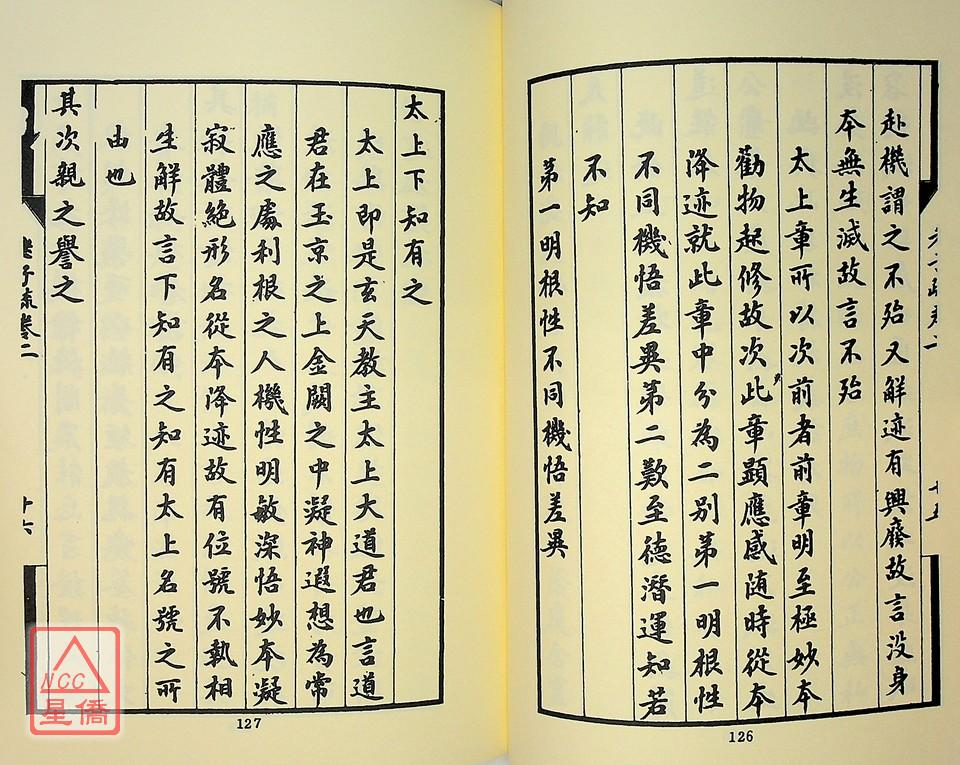 赴機謂之不殆又解迹有興廢故言没身
本無生滅故言不殆
太上章所以次前者前章明至極妙本
勸物起修故次此章顯應感随時從本
降迹就此章中分為二別第一明根性
不同機悟差異第二歎至德潛運知若
不知
第一明根性不同機悟差異
十五
126
太上下知有之
太上即是玄天教主太上大道君也言道
君在玉京之上金闕之中凝神遐想為常
應之處利根之人機性明敏深悟妙本凝
寂體絕形名從本降迹故有位號不執相
生解故言下知有之知有太上名號之所
由也
其次親之譽之
老子疏卷二
十六
127
NCC
星僑